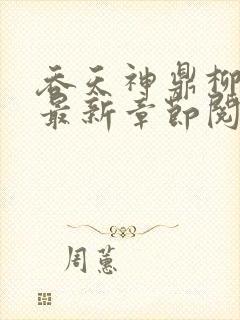 吞天神鼎柳
最新章节阅
周蕙